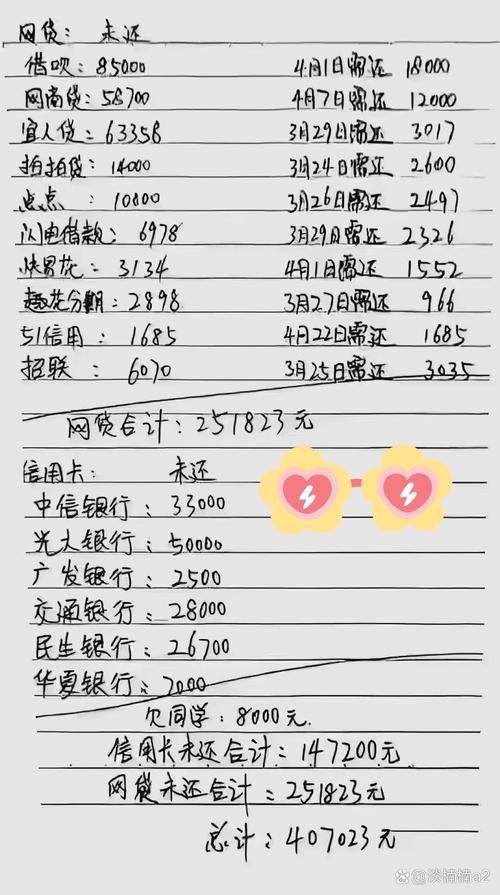 网贷： 未还
借呗：85000 4月1日需还 18000
网商贷：58700 4月7日需还 12000
宜人贷：63358 3月29日需还 3017
拍拍贷：14000 3月24日需还 2600
点点：10000 3月26日需还 2497
闪电借款：6978 3月29日需还 2326
快易花：3134 4月1日需还 1552
趣花分期：2898 3月27日需还 966
51信用：1685 4月22日需还 1685
招联：6070 3月25日需还 3035
网贷合计：251823元
信用卡： 未还
中信银行：33000
光大银行：50000
广发银行：2500
交通银行：28000
民生银行：26700
华夏银行：7000
欠同学：8000元.
信用卡未还合计：147200元
网贷未还合计：251823元
总计：407023元
@淡楠楠a2